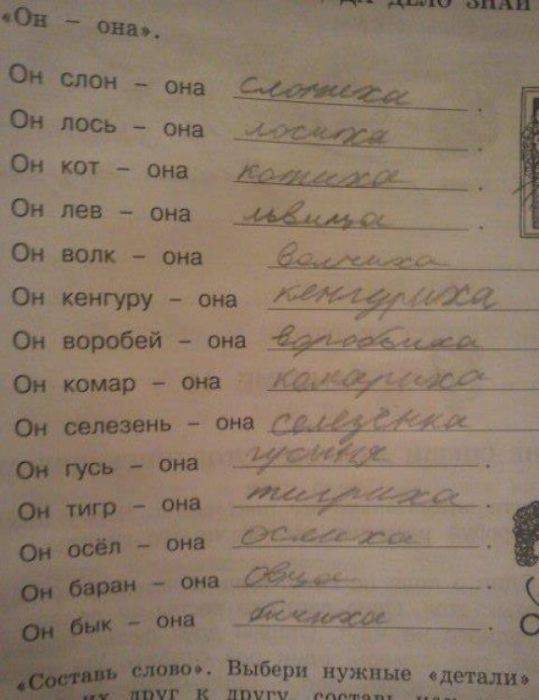 ДА ДЕЛО ЗНАЙ
«Он – она».
Он слон – она слониха.
Он лось – она лосиха.
Он кот – она котиха.
Он лев – она львица.
Он волк – она волчиха
Он кенгуру – она кенгуриха
Он воробей – она воробьиха
Он комар – она комариха
Он селезень – она селезёнка
Он гусь – она гусыня.
Он тигр – она тигриха.
Он осёл – она ослиха.
Он баран – она овца.
Он бык – она бичиха.
«Составь слово». Выбери нужные «детали»
их друг к другу, составь